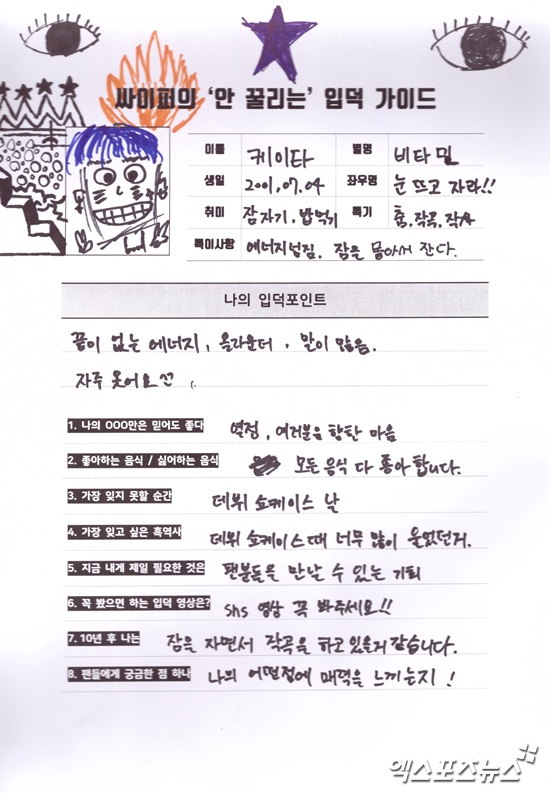 싸이퍼의 '안 꿀리는' 입덕 가이드
이름 케이타 별명 비타민
생일 2001.07.04 좌우명 눈 뜨고 자라!!
취미 잠자기, 밥먹기 특기 춤, 작곡, 작사
특이사항 에너지넘침. 잠을 몰아서 잔다.
나의 입덕포인트
끝이 없는 에너지, 올라운더, 말이 많음.
자주 웃어요
1. 나의 OOO만은 믿어도 좋다 열정, 여러분을 향한 마음
2. 좋아하는 음식 / 싫어하는 음식 모든 음식 다 좋아 합니다.
3. 가장 잊지 못할 순간 데뷔 쇼케이스 날
4. 가장 잊고 싶은 흑역사 데뷔 쇼케이스때 너무 많이 울었던거.
5. 지금 내게 제일 필요한 것은 팬분들을 만날 수 있는 기회
6. 꼭 봤으면 하는 입덕 영상은? sns 영상 꼭 봐주세요!!
7. 10년 후 나는 잠을 자면서 작곡을 하고 있을거 같습니다.
8. 팬들에게 궁금한 점 하나 나의 어떤점에 매력을 느끼는지!
엑스포츠뉴스